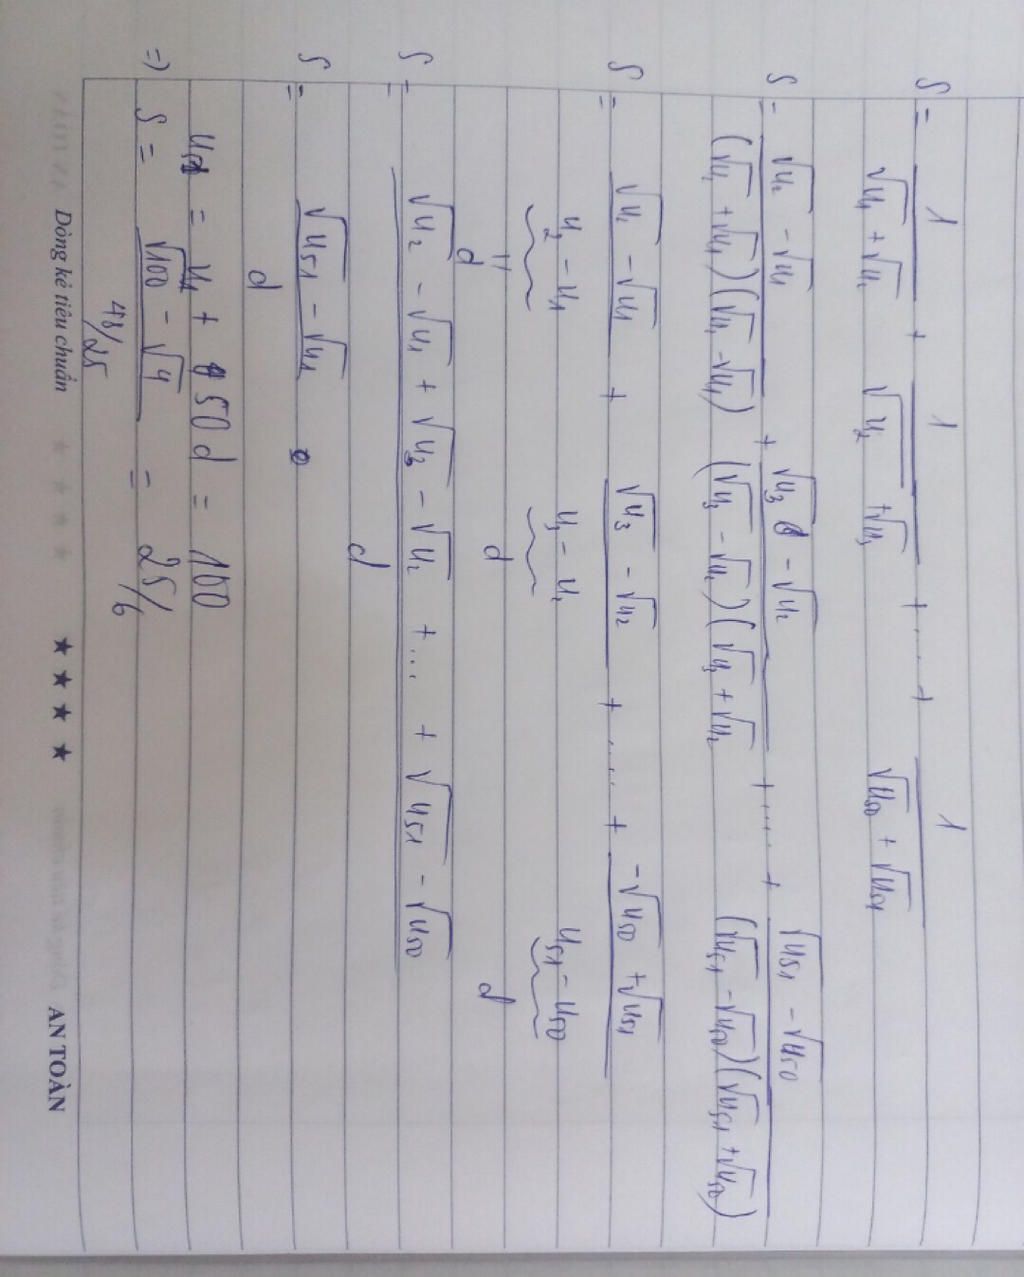 S = 1/(√u₁ + √u₂) + 1/(√u₂ + √u₃) + .... + 1/(√u₅₀ + √u₅₁)
S = (√u₂ - √u₁)/((√u₂ + √u₁)(√u₂ - √u₁)) + (√u₃ - √u₂)/((√u₃ - √u₂)(√u₃ + √u₂)) + .... + (√u₅₁ - √u₅₀)/((√u₅₁ - √u₅₀)(√u₅₁ + √u₅₀))
S = (√u₂ - √u₁)/(u₂ - u₁) + (√u₃ - √u₂)/(u₃ - u₂) + ..... + (-√u₅₀ + √u₅₁)/(u₅₁ - u₅₀)
" d d d
S = (√u₂ - √u₁ + √u₃ - √u₂ + ... + √u₅₁ - √u₅₀)/d
S = (√u₅₁ - √u₁)/d
u₅₁ = u₁ + 50d = 100
=> S = (√100 - √4)/(48/25) = 25/6
Dòng kẻ tiêu chuẩn ★ ★ ★ ★ AN TOÀN